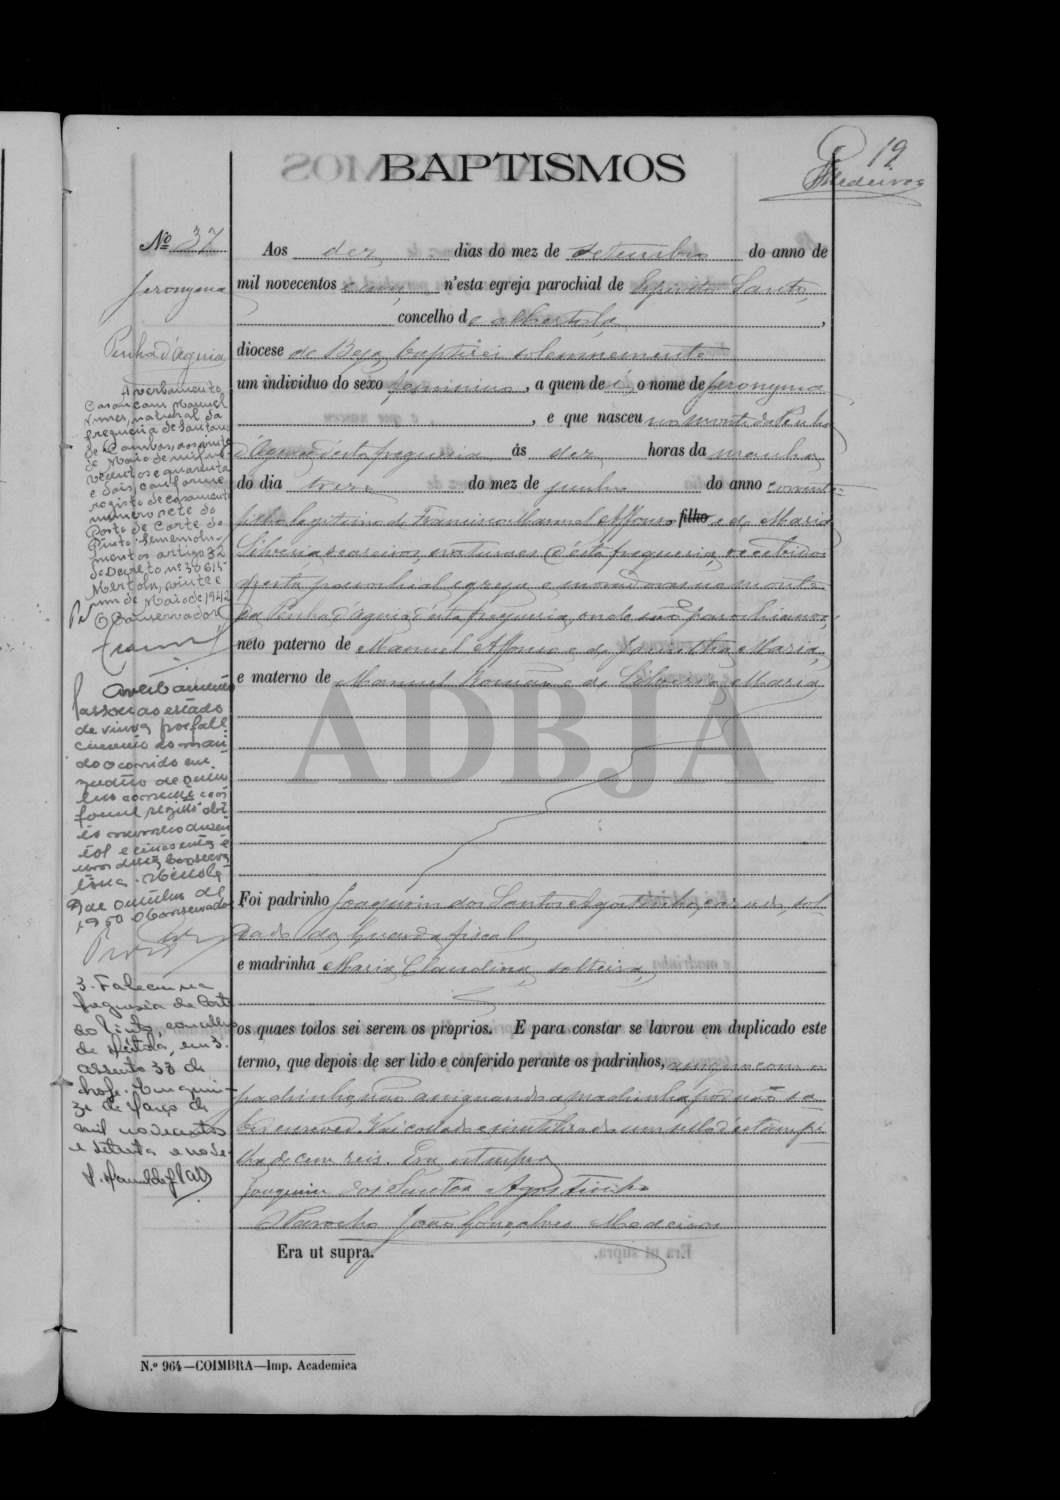 BAPTISMOS
19
Medeiros
Nº 37
Jeronyma
Penha d'Aguia
Averbamento
Casou com Manuel
natural da
freguesia de Santana
de Cambas, aos vinte
de Maio de mil no-
vecentos e quarenta
e dois, conforme
registo de casamento
numero sete do
Posto de Corte do
Pinto. Emolu-
mentos artigo 32
do Decreto nº 30615
Mertola, vinte e
um de Maio de 1942
O Conservador
Averbamento
Passou ao estado
de viuva por fale-
cimento do mari-
do ocorrido em
de
corrente con-
forme registo obi-
to numero duzen-
tos e cincoenta e
um desta Conserva-
toria. Mértola
9 de Outubro de
1950 O Conservador
3. Faleceu na
freguesia de Corte
do Pinto, concelho
de Mértola, em 3.
assento 33 de
hoje. Em quin-
ze de Março de
mil novecentos
e setenta e nove.
Aos dez dias do mez de setembro do anno de
mil novecentos e um, n'esta egreja parochial de Espirito Santo,
concelho de Mertola,
diocese de Beja baptisei solemnemente
um individuo do sexo feminino, a quem dei o nome de Jeronyma
, e que nasceu no monte da Penha
d'Aguia d'esta freguesia ás dez horas da manhã
do dia treze do mez de junho do anno corrente
filha legitima de Francisco Manuel Affonso filho e de Maria
Silveria seareiros, naturaes d'esta freguesia, recebidos
n'esta parochial egreja e moradores no monte
da Penha d'Aguia d'esta freguesia, onde são parochianos,
neto paterno de Manuel Affonso e de Maria,
e materno de Manuel Romão e de Silveria Maria
ADBJA
Foi padrinho Joaquim dos Santos Agostinho, casado, sol-
dado da Guarda fiscal
e madrinha Maria Claudina, solteira,
os quaes todos sei serem os proprios. E para constar se lavrou em duplicado este
termo, que depois de ser lido e conferido perante os padrinhos, assigno com o
padrinho, não assignando a madrinha por não sa-
ber escrever. Vai collado e inutilisado um sello d'estampi-
lha de cem reis. Era ut supra
Joaquim dos Santos Agostinho
O Parocho João Gonçalves Medeiros
Era ut supra.
N.º 964—COIMBRA—Imp. Academica